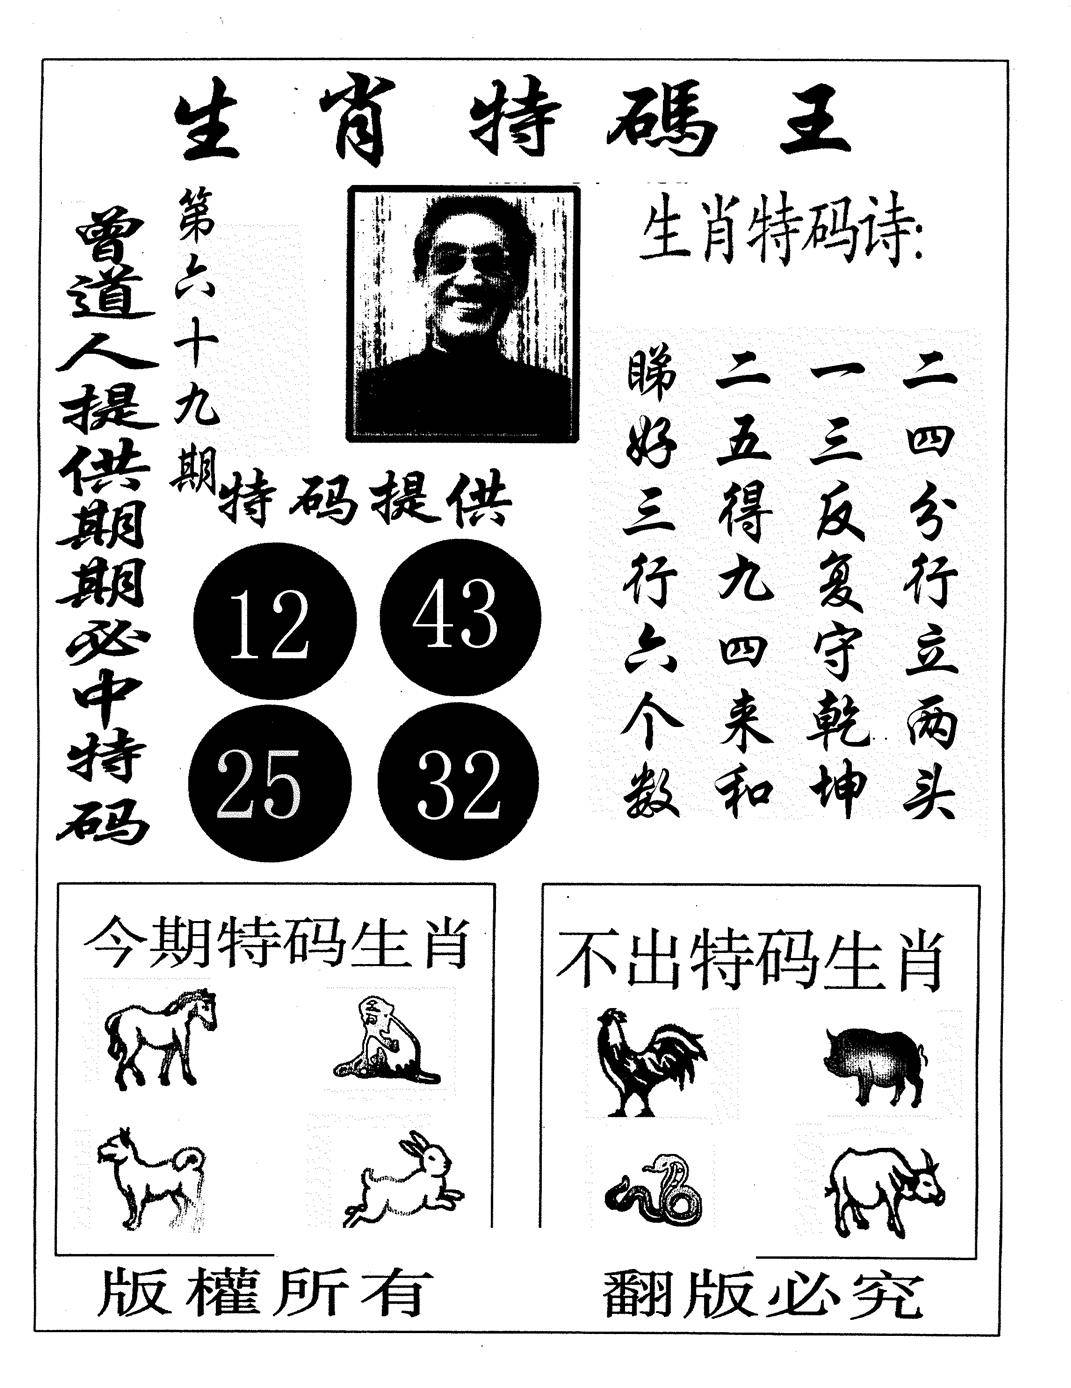 生肖特碼王
曾道人提供期期必中特码
第六十九期
生肖特码诗:
二四分行立两头
一三反复守乾坤
二五得九四来和
睇好三行六个数
特码提供
12 43
25 32
今期特码生肖
不出特码生肖
版權所有
翻版必究